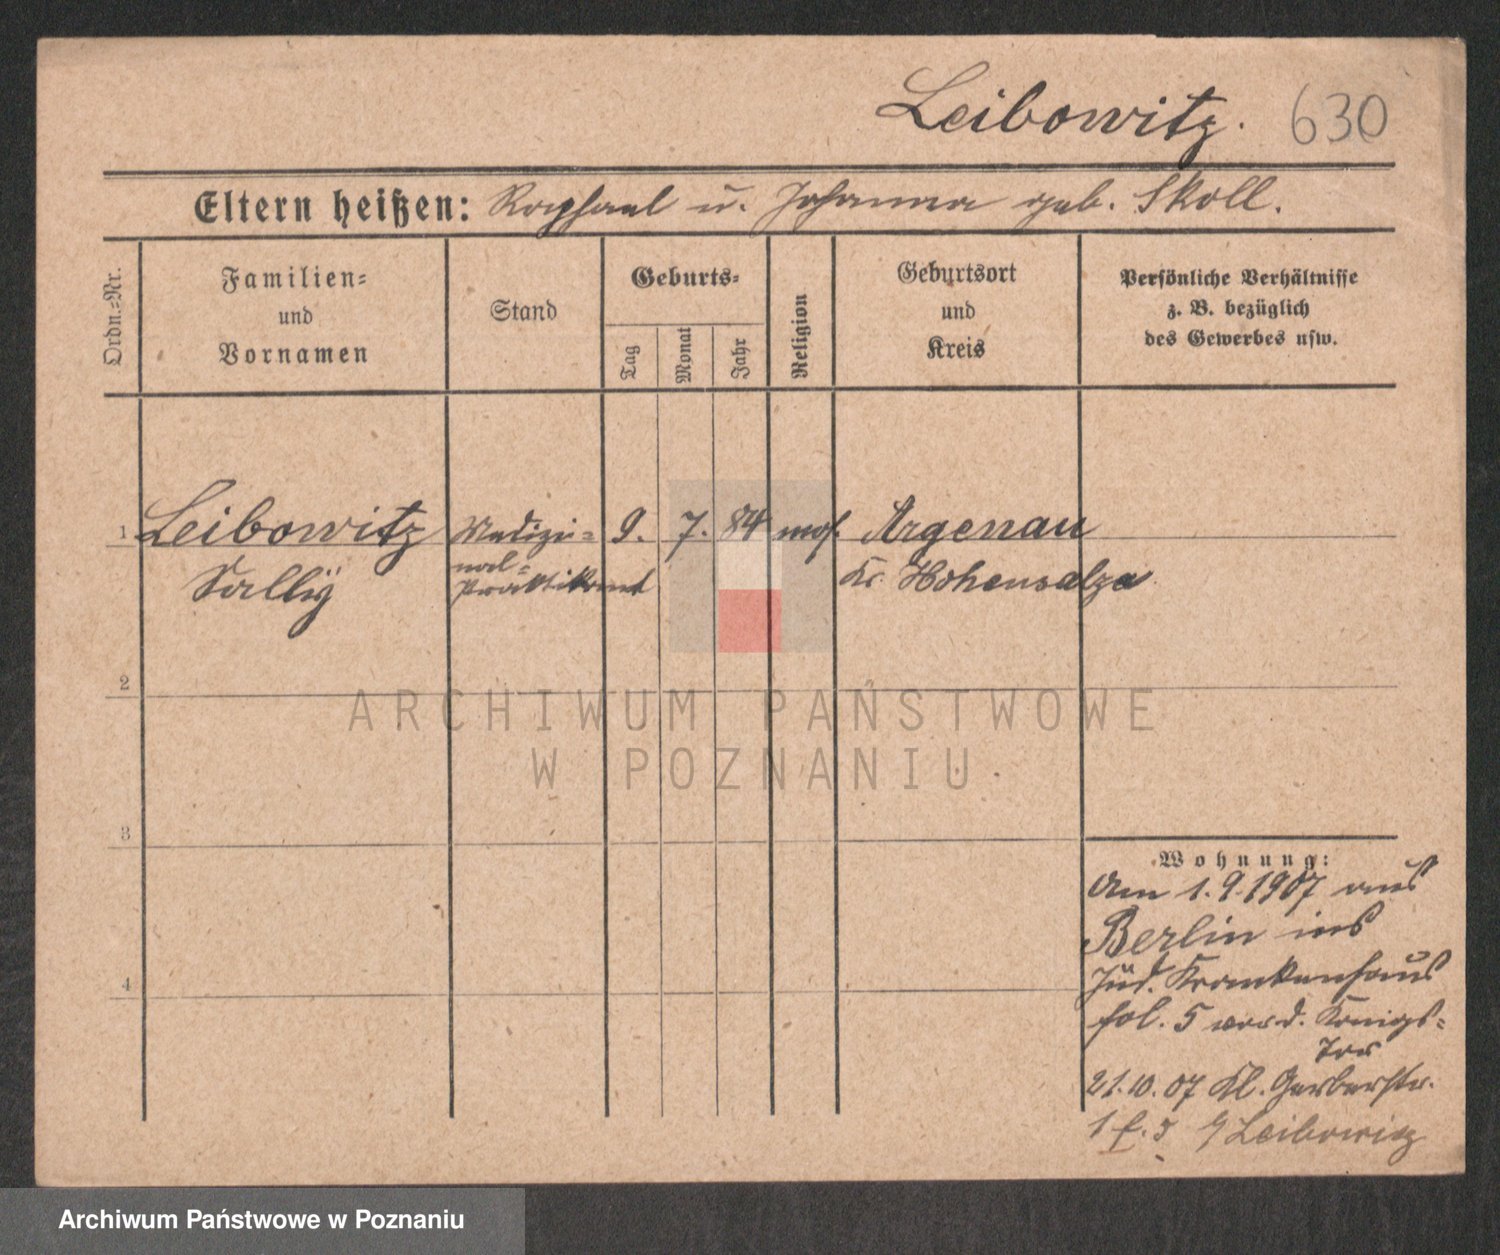 Leibowitz. 630
Eltern heißen: Raphael u. Johanna geb. Skoll.
Ordn.=Nr.
Familien=
und
Vornamen
Stand
Geburts=
Tag
Monat
Jahr
Religion
Geburtsort
und
Kreis
Persönliche Verhältnisse
z. B. bezüglich
des Gewerbes usw.
1 Leibowitz Medizi= 9. 7. 84 mos. Argenau
nal=
Sally praktikant Kr. Hohensalza
2
3
4
Wohnung:
Am 1.9.1907 aus
Berlin ins
Jüd. Krankenhaus
fol. 5 vor d. Königs=
Tor
21.10.07 Kl. Gerberstr.
Leibowitz
ARCHIWUM PAŃSTWOWE
W POZNANIU
Archiwum Państwowe w Poznaniu